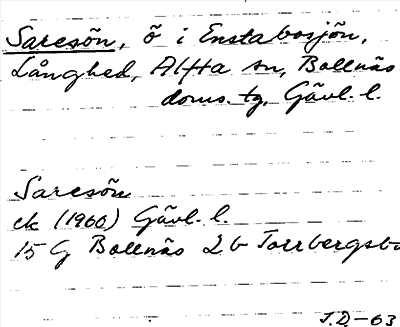 Saresön, ö i Enstabosjön,
Långhed, Alfta sn, Bollnäs
doms. tg, Gävl. l.
Saresön
ek (1960) Gävl. l.
15 G Bollnäs 2b Torrbergsbo
J.D-63